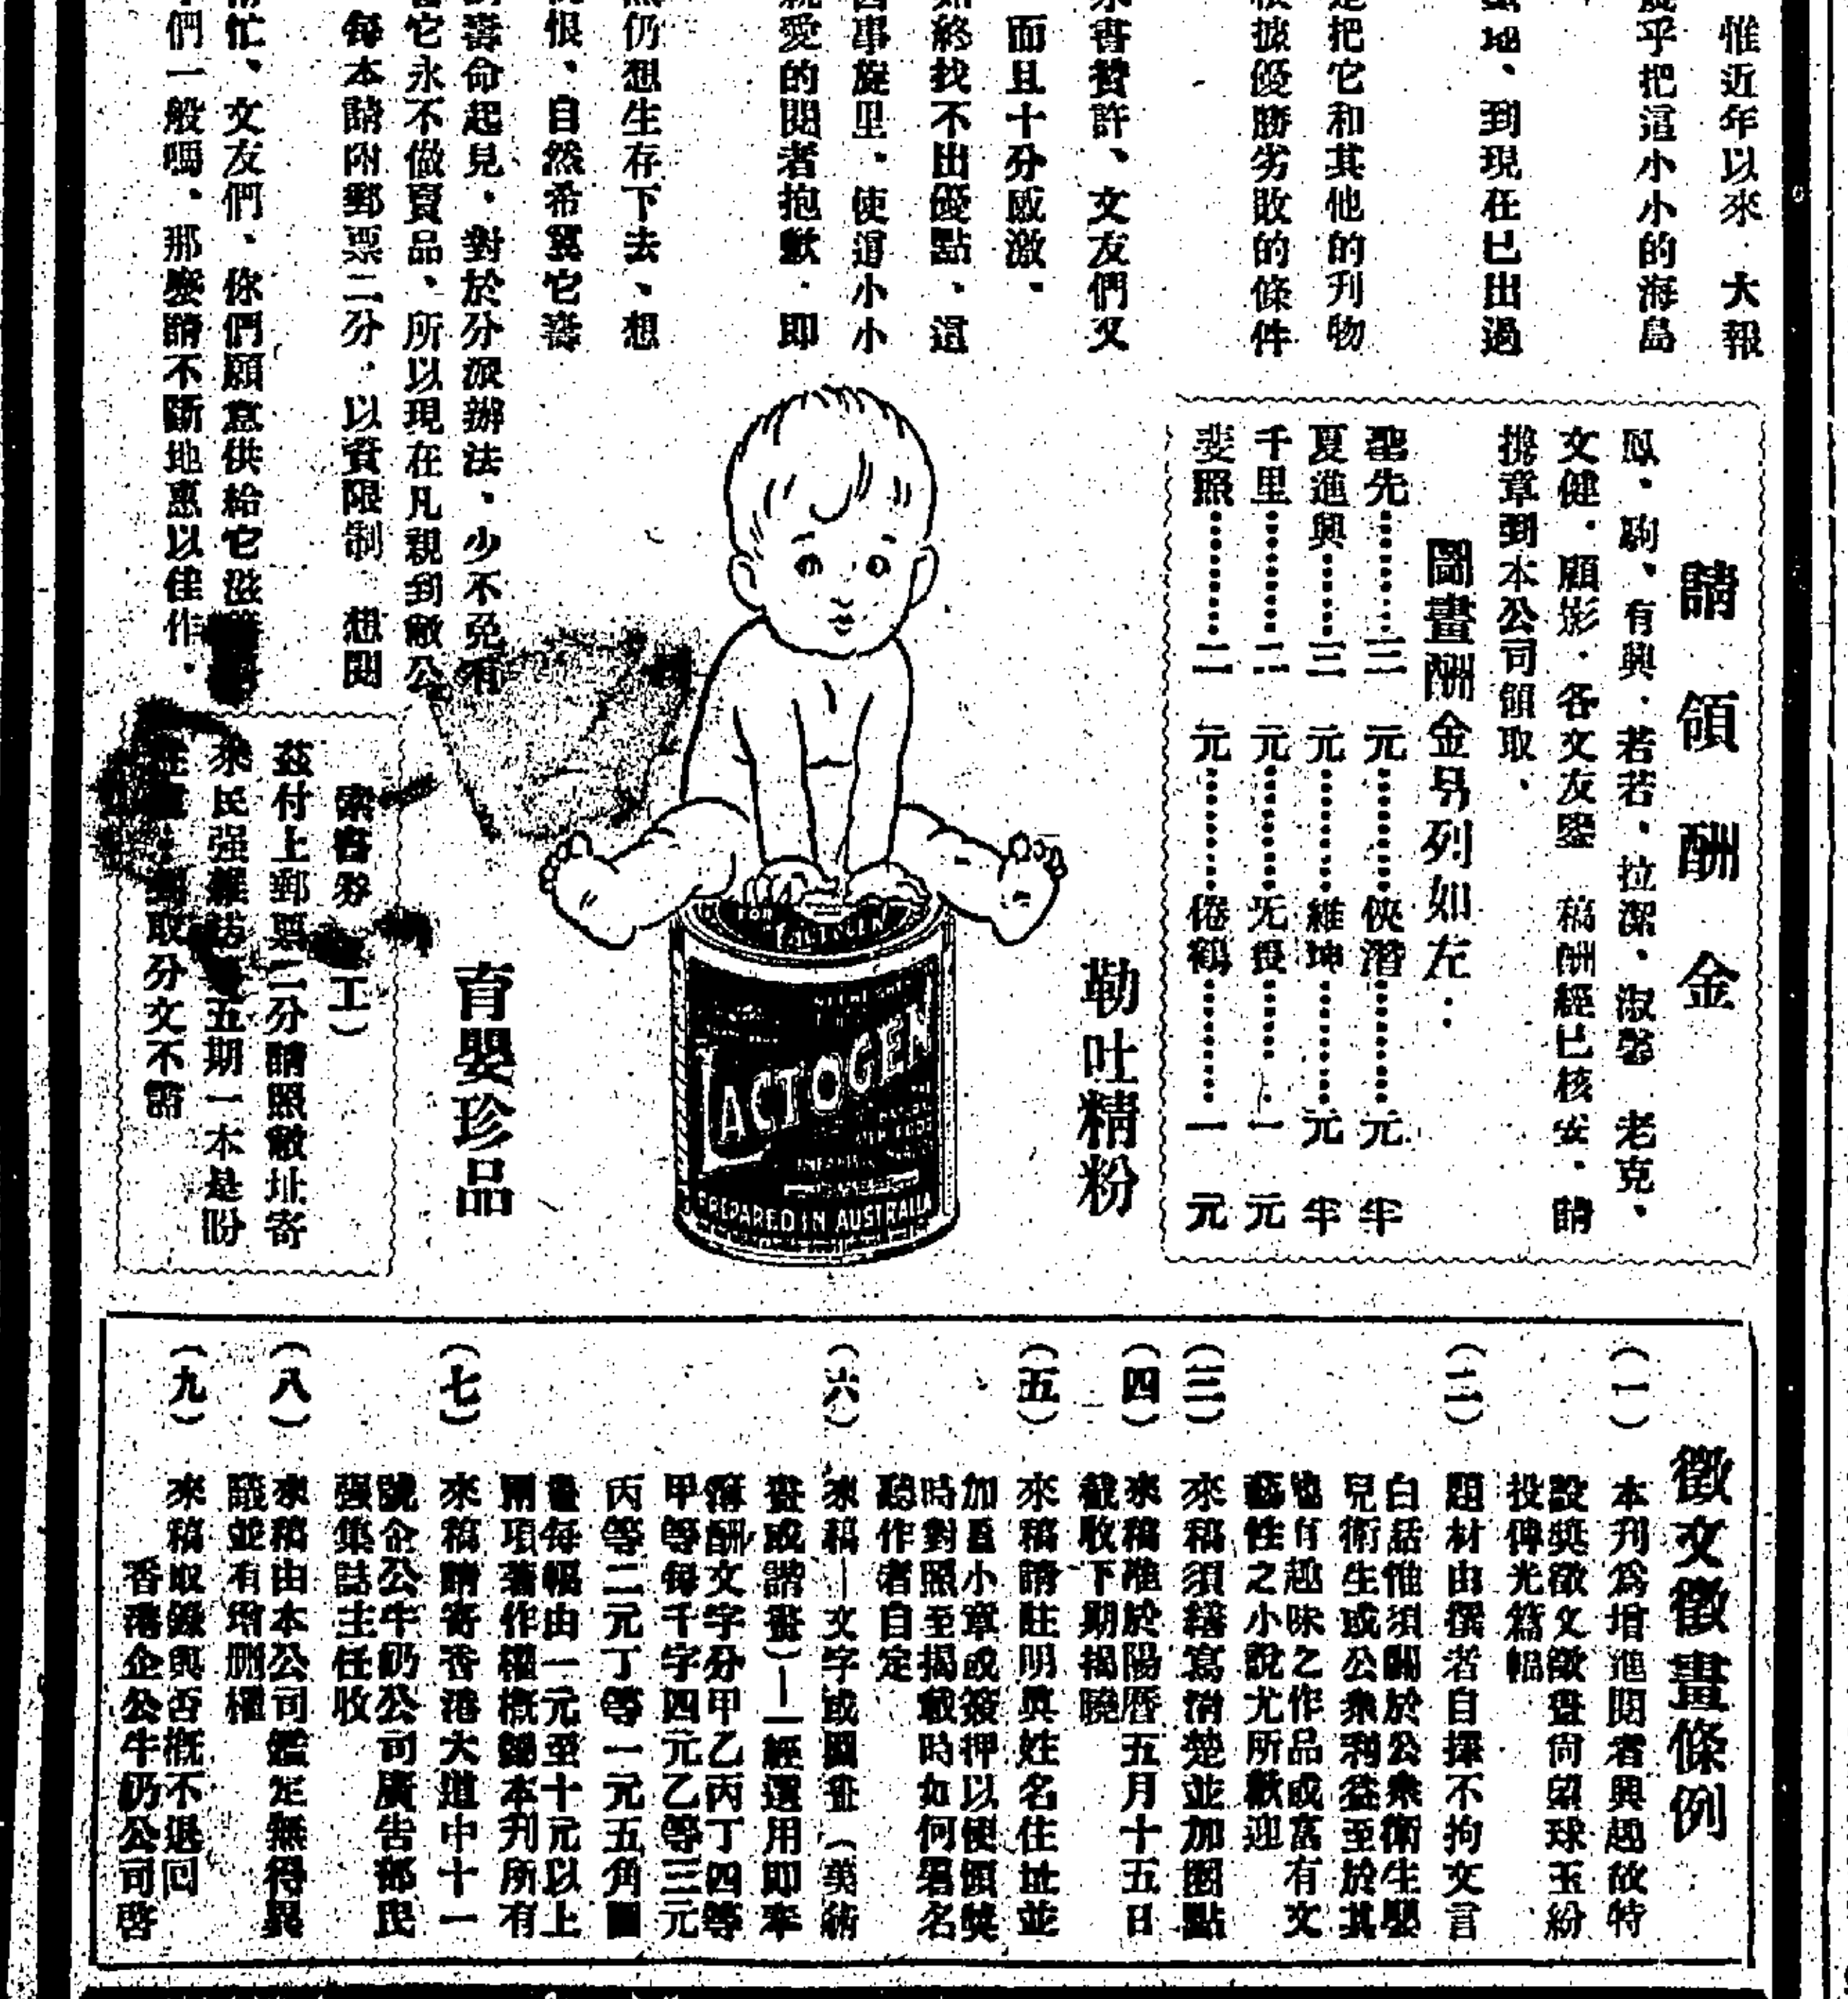 惟近年以來．大報
乎把這小小的海島
地、到現在已出過
把它和其他的刋物
披優勝劣敗的條件
書贊許、文友們又
而且十分感激、
終找不出優點．這
事旋里．使這小小
愛的閱者抱歉．即
仍想生存下去、想
恨、自然希冀它壽
壽命起見．對於分派辦法．少不免有
它永不做賣品、所以現在凡親到敝公
每本請附郵票二分．以資限制 想閱
忙、文友們．你們願意供給它滋
們一般嗎．那麽請不斷地惠以佳作．
請領酬金
鳳．駒、有興．若若．拉潔．淑馨 老克、
文健．顧影．各文友鑒 稿酬經已核妥．請
携章到本公司領取、
圖畫酬金另列如左：
聖先……三元……俠潛……元半
夏進興……三元……維坤……元半
千里……二元……旡畏……一元
斐照……二元……倦鶴……一元
勒吐精粉
育嬰珍品
LACTOGEN
PREPARED IN AUSTRALIA
索書券 工）
茲付上郵票二分請照敝址寄
來民强雜誌 五期一本是盼
取分文不需
徵文徵畫條例
（一）本刋爲增進閱者興趣故特
設奬徵文徵畫尙望球玉紛
投俾光篇幅
（二）題材由撰者自擇不拘文言
白話惟須關於公衆衛生嬰
兒衛生或公衆利益至於其
他有趣味之作品或富有文
藝性之小說尤所歡迎
（三）來稿須繕寫淸楚並加圈點
（四）來稿准於陽曆五月十五日
截收下期揭曉
（五）來稿請註明眞姓名住址並
加蓋小章或簽押以便領奬
時對照至揭載時如何署名
聽作者自定
（六）來稿—文字或圖畫（美術
畫或諧畫）—一經選用即奉
薄酬文字分甲乙丙丁四等
甲等每千字四元乙等三元
丙等二元丁等一元五角圖
畫每幅由一元至十元以上
兩項著作權槪歸本刋所有
（七）來稿請寄香港大道中十一
號企公牛奶公司廣告部民
强集誌主任收
（八）來稿由本公司鑑定無得異
議並有增删權
（九）來稿取錄與否槪不退回
香港企公牛奶公司啓